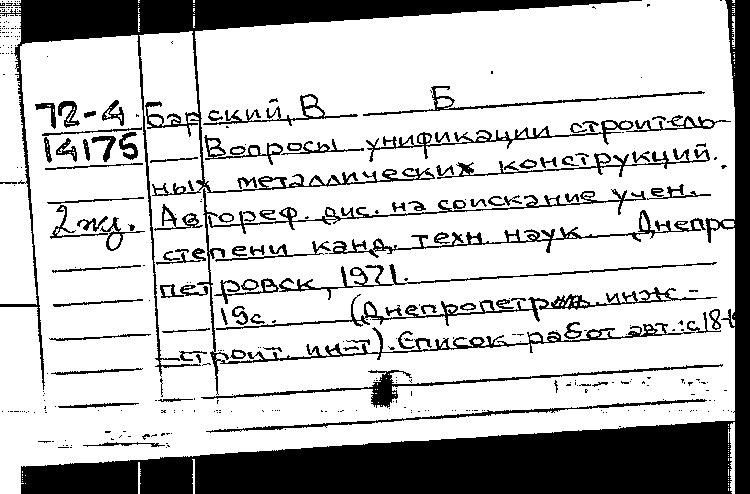 72-4 Барский, В Б
14175 Вопросы унификации строитель-
ных металлических конструкций.
2 Автореф. дис. на соискание учен.
степени канд. техн. наук. Днепро
петровск, 1971.
19с. (Днепропетр. инж.-
строит. ин-т). Список работ авт.: с.18-19